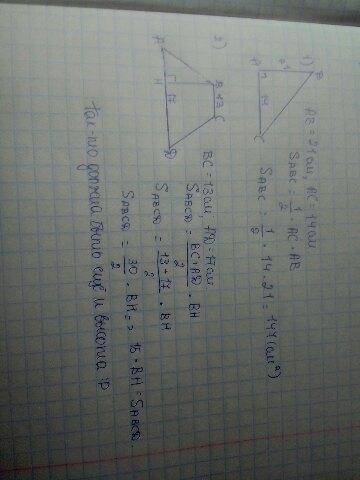 1) B
21
A
14
C
AB = 21 см, AC = 14 см
S ABC = 1/2 · AC · AB
S ABC = 1/2 · 14 · 21 = 147 (см²)
2)
A
H
17
D
B
13
C
BC = 13 см, AD = 17 см
S ABCD = BC+AD/2 · BH
S ABCD = 13+17/2 · BH
S ABCD = 30/2 · BH => 15 · BH = S ABCD.
Так-то должна быть ещё и высота :D